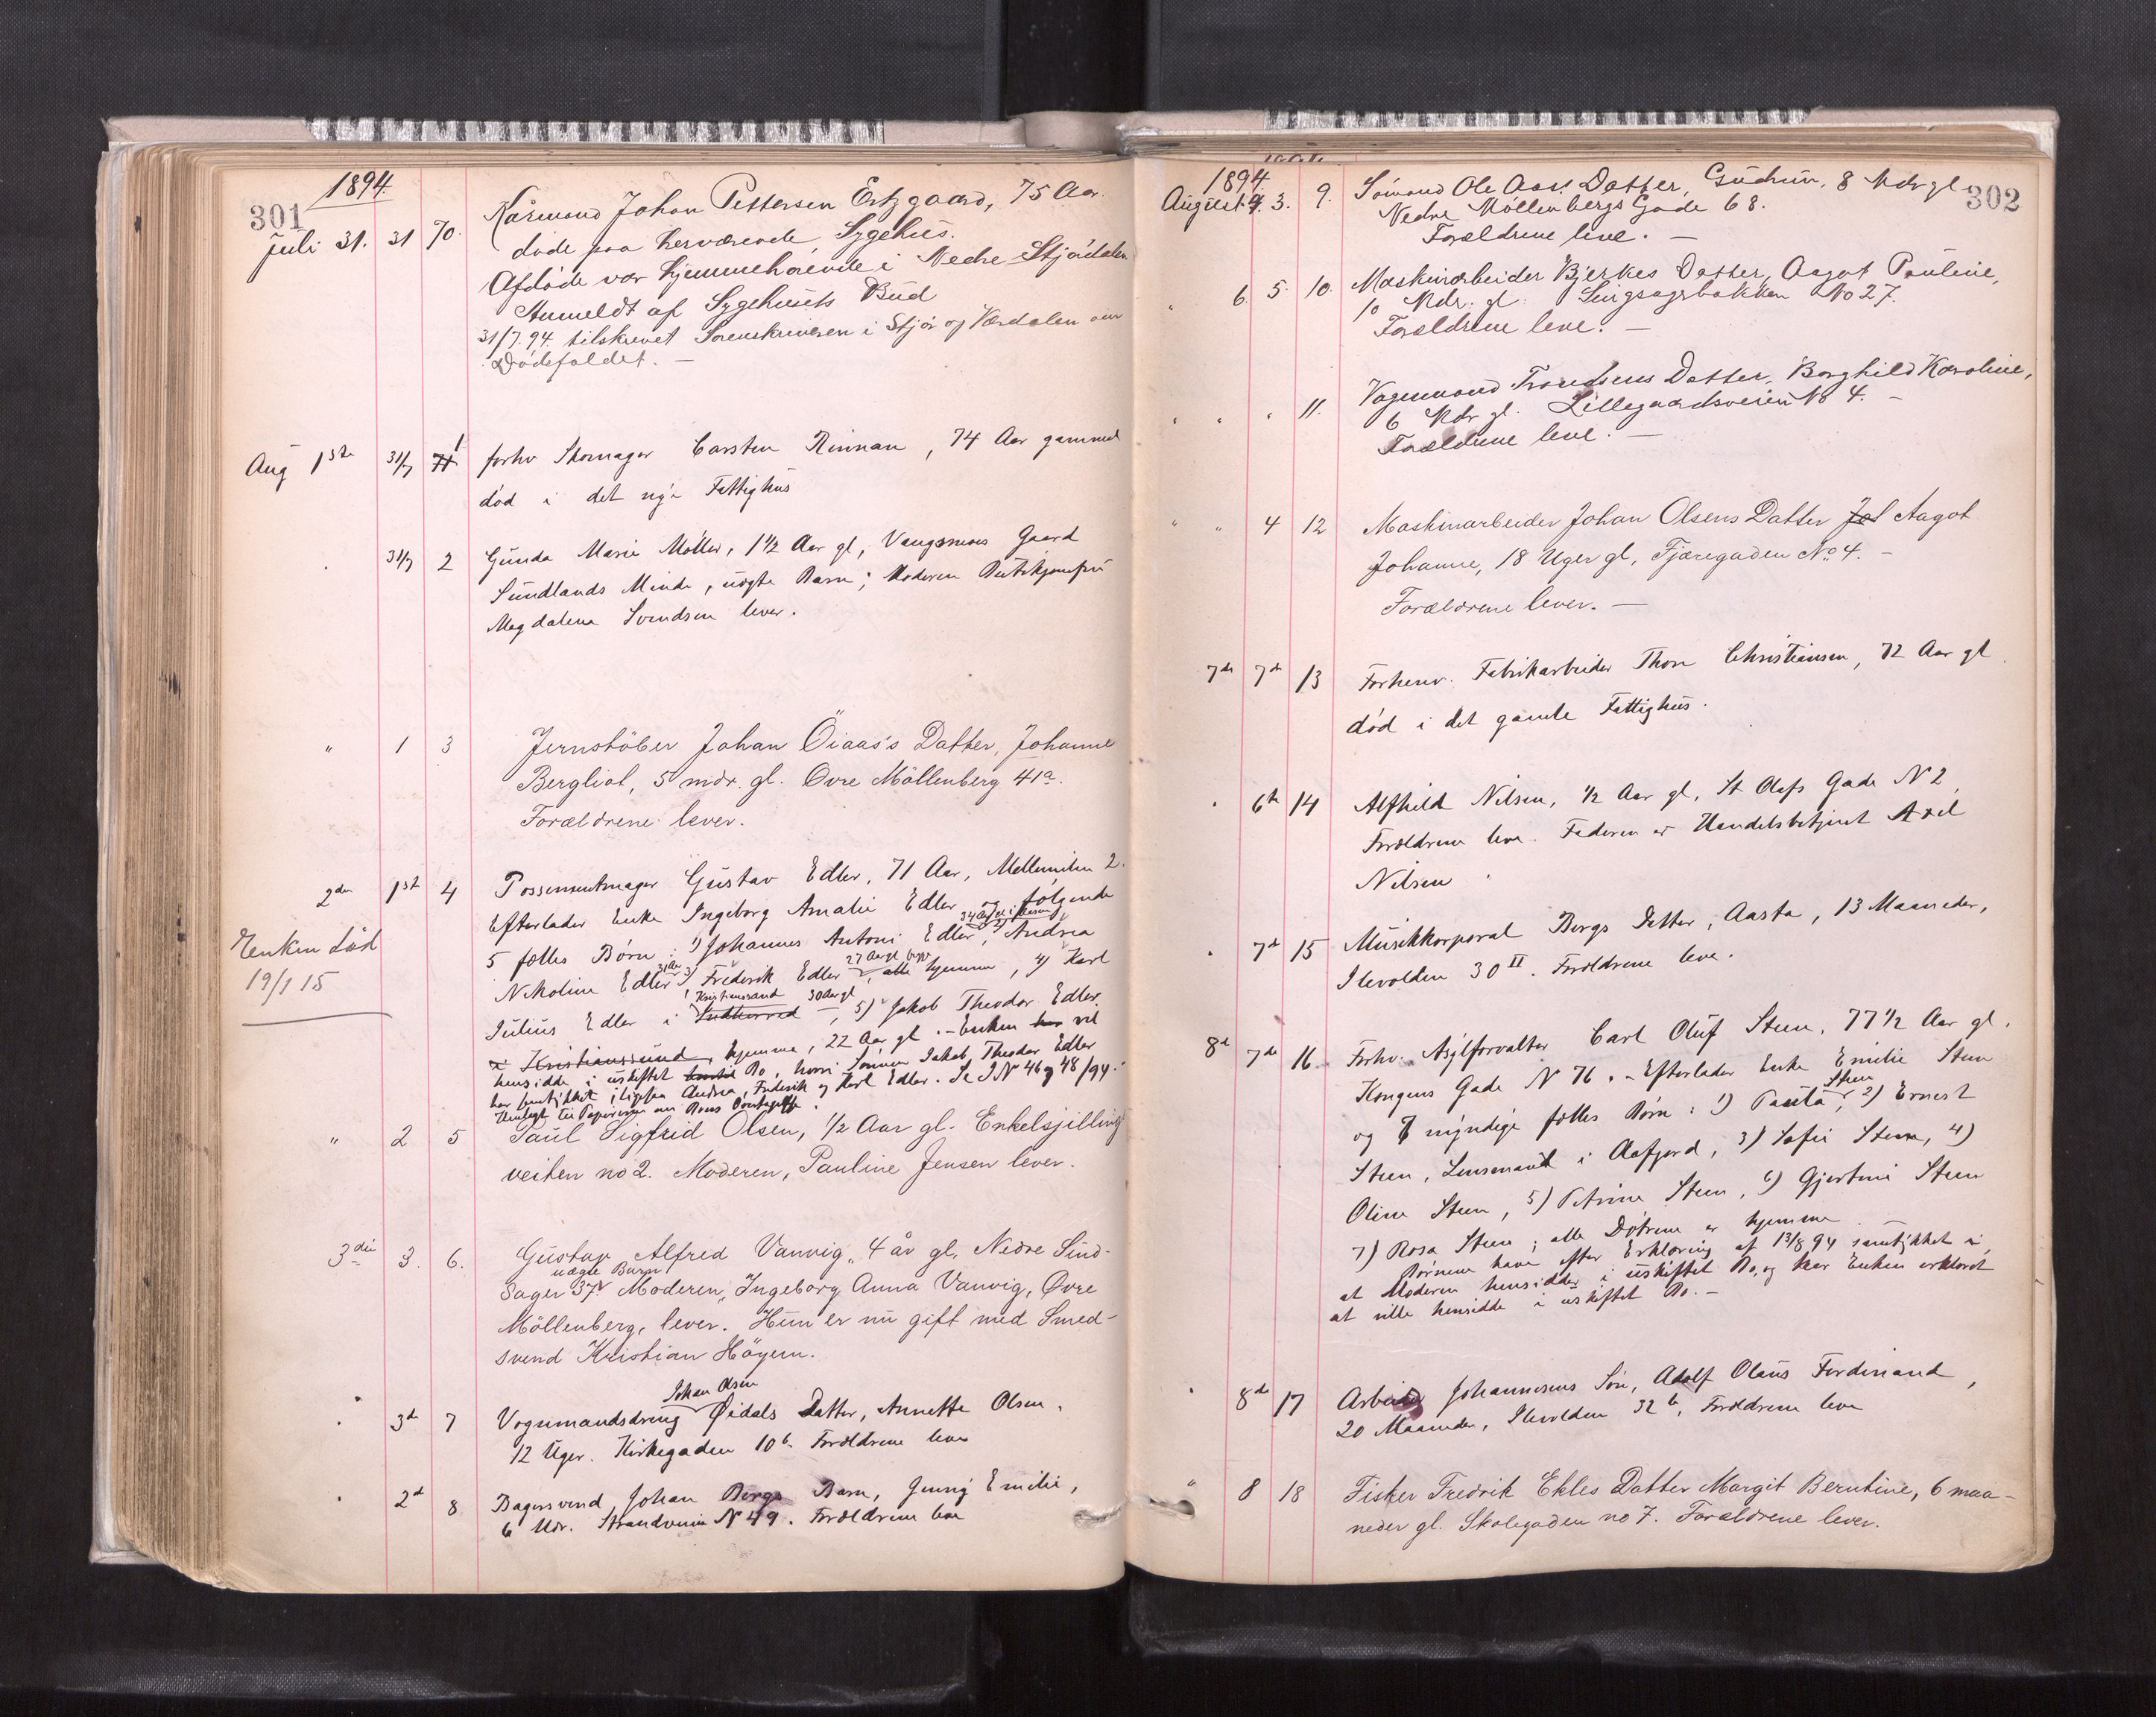 301
1894
Juli 31. 31 70. Kårmand Johan Pettersen Ertzgaard, 75 Aar.
døde paa herværende Sygehus.
Afdøde var hjemmehørende i Nedre Stjørdalen
Anmeldt af Sygehusets Bud
31/7.94. tilskrevet Sorenskriveren i Stjør og Værdalen om
Dødsfaldet. —
Aug 1ste 31/7 1 forhv Skomager Carsten Rinnan, 74 Aar gammel
död i det nye Fattighus
31/7 2 Gunda Marie Möller, 1 1/2 Aar gl, Gaard
Sundlands Minde, uægte Barn; Moderen
Magdalena Svendsen lever.
" 1 3 Jernstöber Johan Öiaas's Datter, Johanne
Bergliot, 5 mdr. gl. Øvre Möllenberg 41a.
Forældrene lever.
2den 1st 4 Possementmager Gustav Edler, 71 Aar, Mellemilen 2.
Efterlader Enke Ingeborg Amalie Edler og følgende
34 Aar gl i Bergen
5 fælles Børn: 1) Johannes Antoni Edler, 2) Andrea
31 Aar 27 Aar gl
Nikoline Edler 3) Frederik Edler, alle hjemme, 4) Karl
Kristianssand 30 Aar gl
Julius Edler i —, 5) Jakob Theodor Edler
i Kristianssund, hjemme, 22 Aar gl. - Enken har vil
hensidde i uskiftet Bo, hvori Sønnen Jakob Theodor Edler
har samtykket, ligesaa Andrea, Frederik og Karl Edler. Se J.N 46 og 48/94.
Henlagt til Papirerne om Boets
Enken död
19/1 15
" 2 5 Paul Sigfrid Olsen, 1/2 Aar gl. Enkelsjilling
veiten no 2. Moderen, Pauline Jensen lever.
3die 3. 6. Gustav Alfred Vanvig, 4 år gl. Nedre Sing-
uægte Barn
sager 37. Moderen, Ingeborg Anna Vanvig, Øvre
Möllenberg, lever. Hun er nu gift med Smed-
svend Kristian Höyem.
Johan Olsen
3d 7 Vognmandsdreng Øidals Datter, Annette Olsen,
12 Uger. Kirkegaden 10b. Forældrene leve
2d 8 Bagersvend Johan Bergs Barn, Jenny Emilie,
6 Mdr. Strandveien N 49. Forældrene leve
302
1894.
August 4. 3. 9. Sömand Ole Aas's Datter, Gudrun, 8 Mdr gl
Nedre Möllenbergs Gade 68.
Forældrene leve. —
" 6. 5. 10. Maskinarbeider Bjerkes Datter, Aagot Pauline,
10 Mdr. gl. Singsagerbakken No 27.
Forældrene leve. —
" " " 11. Vognmand Trondsens Datter, Borghild Karoline,
6 Mdr gl. Lillegaardsveien No 4. -
Forældrene leve. —
" " 4 12 Maskinarbeider Johan Olsens Datter Jo Aagot
Johanne, 18 Uger gl, Fjæregaden No 4. -
Forældrene lever. —
7de 7de 13 Forhenv. Fabrikarbeider Thore Christiansen, 72 Aar gl
död i det gamle Fattighus.
6te 14 Alfhild Nilsen, 1/2 Aar gl, St Olafs Gade N 2,
Forældrene leve. Faderen er Handelsbetjent Axel
Nilsen.
7d 15 Musikkorporal Bergs Datter, Aasta, 13 Maaneder,
Ilevolden 30 II. Forældrene leve.
8d 7de 16 Forhv. Asylforvalter Carl Oluf Steen, 77 1/2 Aar gl.
Kongens Gade N 76. - Efterlader Enke Emilie Steen
Steen
og 7 myndige fælles Børn: 1) Paula, 2) Ernest
Steen, Lensmand i Aafjord, 3) Sofie Steen, 4)
Oline Steen, 5) Petrine Steen, 6) Gjertine Steen
7) Rosa Steen; alle Døtrene er hjemme.
Børnene have efter Erklæring af 13/8 94 samtykket i,
at Moderen hensidder i uskiftet Bo, og har Enken erklæret
at ville hensidde i uskiftet Bo. -
8de 17 Arbeider Johannesens Søn, Adolf Olaus Ferdinand,
20 Maaneder, Ilevolden 32b, Forældrene leve
" 8 18 Fisker Fredrik Ekles Datter Margit Berntine, 6 maa-
neder gl. Skolegaden no 7. Forældrene lever.